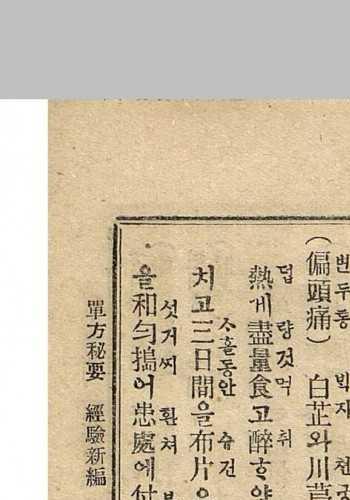 변두통 박지 천
(偏頭痛) 白芷와川芎
덥 량것먹 취
熱게盡量食고醉ᄒᆞ야
ᄉᆞ흘동안 슈건
치고三日間을布片으
섯거찌 환쳐
을和勻搗어患處에付
單方秘要 經驗新編